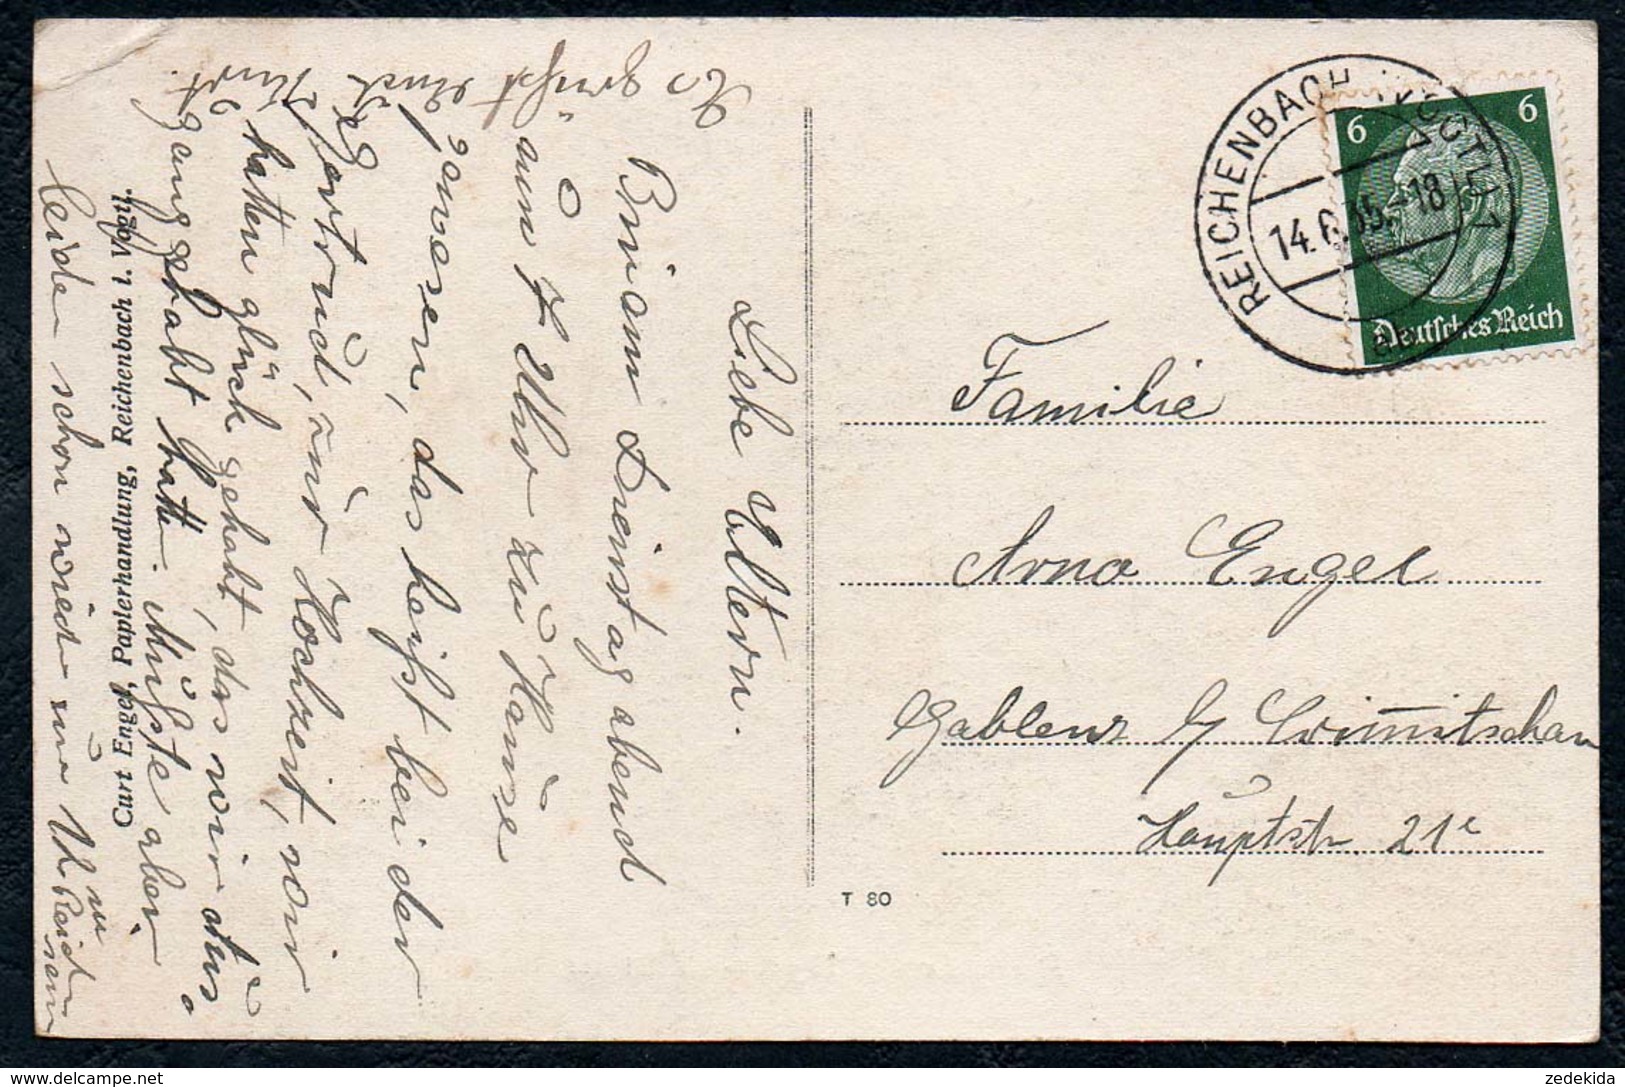 Liebe Eltern.
Bin am Dienstag abend
um 7 Uhr zu Hause
gewesen, das heißt bei der
Gertrud, zur Hochzeit, wir
hatten glück gehabt, das wir
gehabt hatte. Müßte aber
leider schon wieder um Uhr
in Reich
sein
Es grüßt Euch
Kurt.
Curt Engel, Papierhandlung, Reichenbach i. Vogtl.
T 80
REICHENBACH (VOGTL) 1
14.6.35.-18
a
6 6
Deutsches Reich
Familie
Arno Engel
Gablenz b/ Crimmitschau
Hauptstr. 21c
zedekida